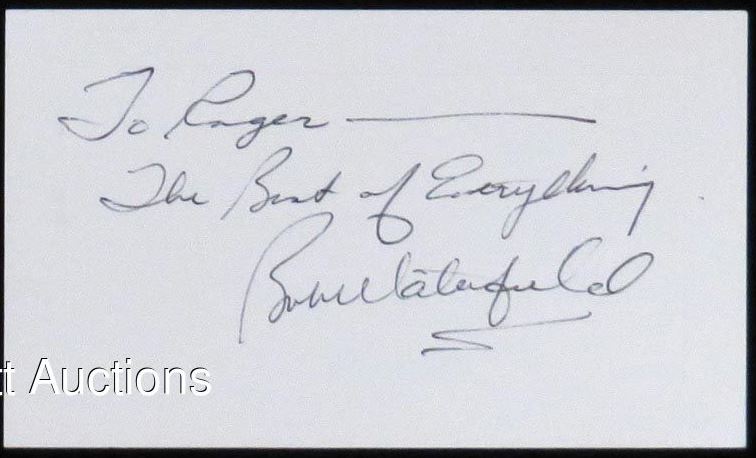 To Roger
The Best of Everything
Bob Waterfield
tt Auctions